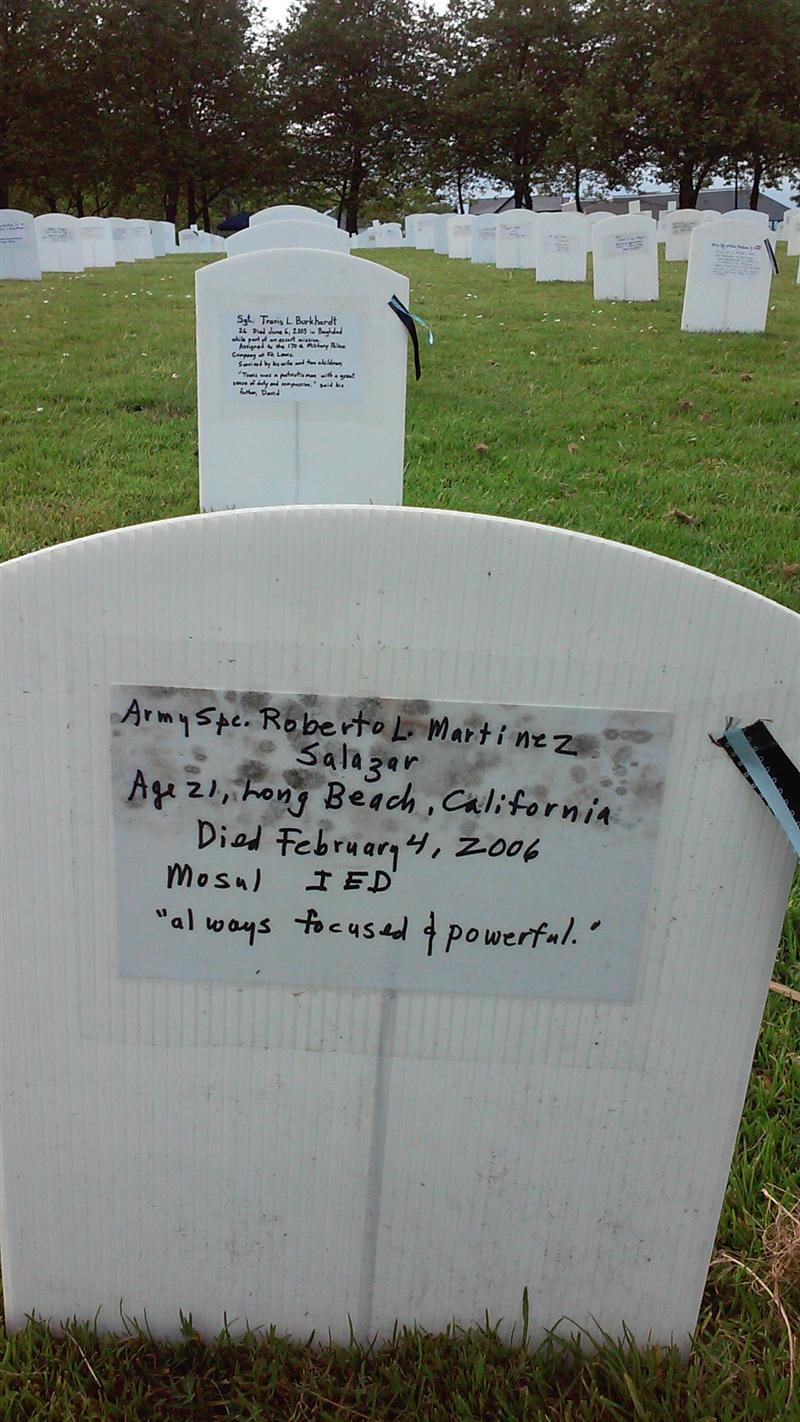 Sgt. Travis L. Burkhardt
26 Died June 6, 2003 in Baghdad
while part of an escort mission.
Assigned to the 170th Military Police
Company at Ft. Lewis.
Survived by his wife and two children.
"Travis was a patriotic man with a great
sense of duty and compassion," said his
father, David
Army Spc. Roberto L. Martinez
Salazar
Age 21, Long Beach, California
Died February 4, 2006
Mosul IED
"always focused & powerful."